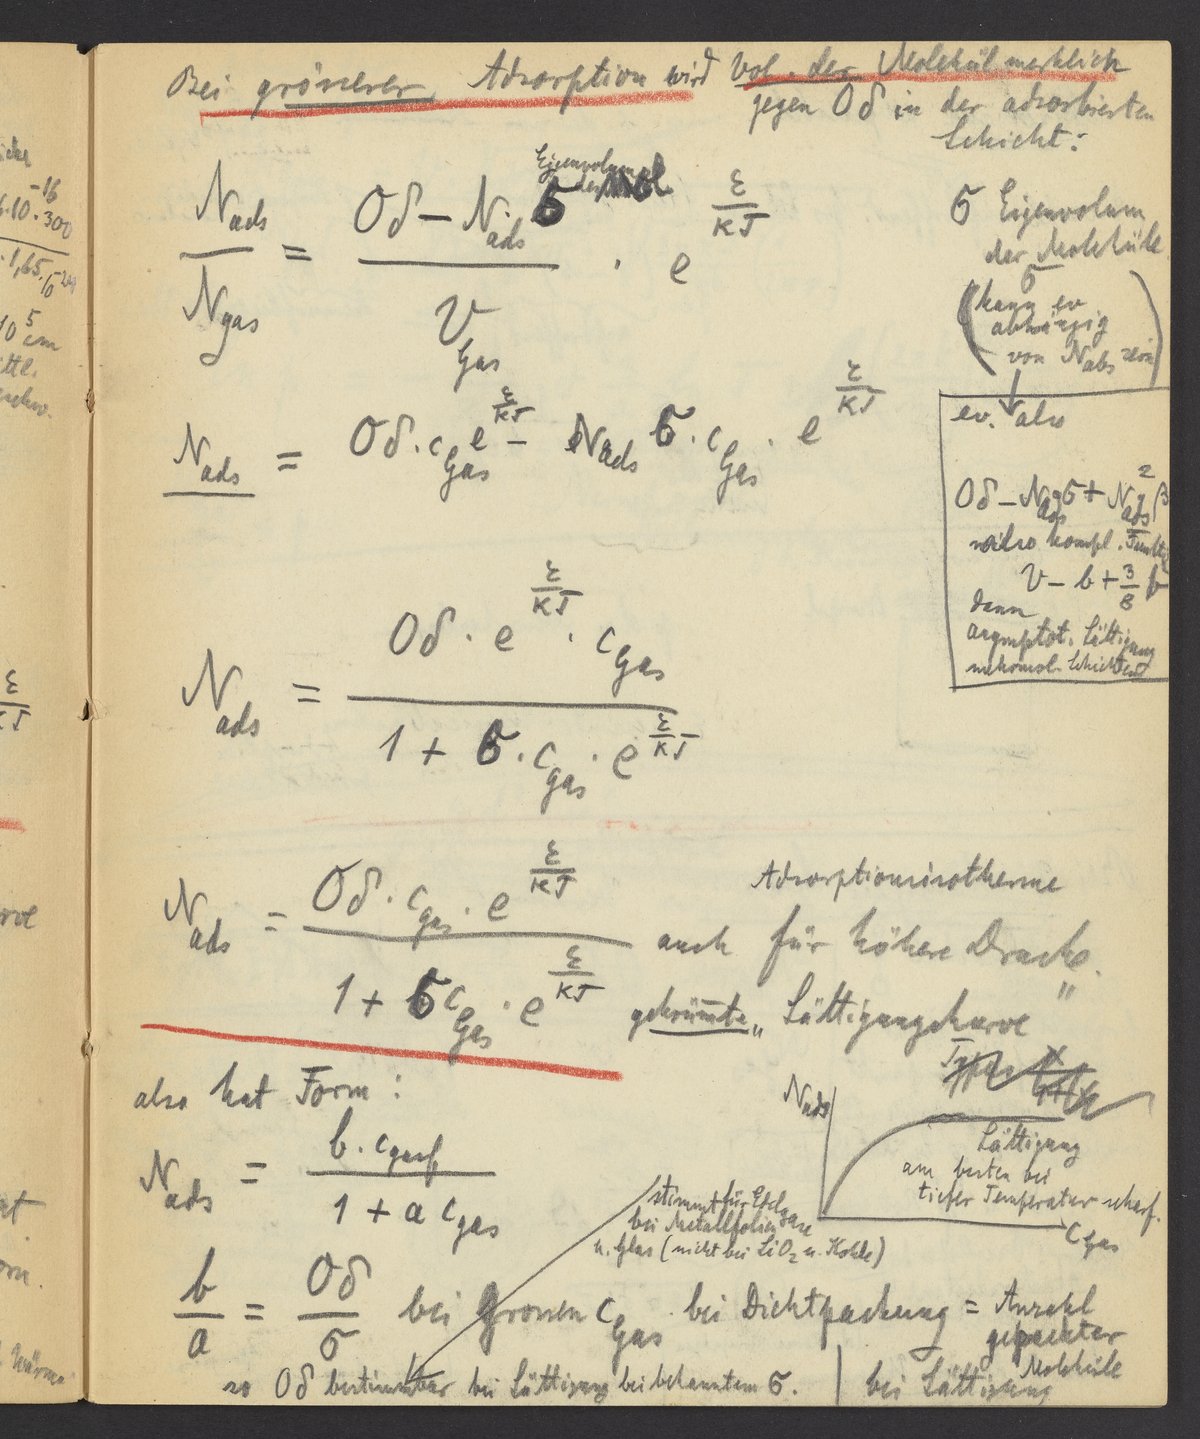 Bei grösserer Adsorption wird Vol. der Moleküle merklich
gegen Oδ in der adsorbierten
Schicht:
Eigenvolum
der Mol
N_ads / N_gas = (Oδ − N_ads σ) / V_Gas · e^(ε/KT)
σ Eigenvolum
der Moleküle
σ
(kann ev
abhängig
von N_abs sein)
N_ads = Oδ · c_Gas e^(ε/KT) − N_ads σ · c_Gas · e^(ε/KT)
ev. also
Oδ − N_ads σ + N_ads² β
also kompl. Funktion
V − b + 3/8 b
dann
asymptot. Sättigung
mehrmol. Schichten
N_ads = (Oδ · e^(ε/KT) · c_gas) / (1 + σ · c_gas · e^(ε/KT))
Adsorptionsisotherme
N_ads = (Oδ · c_gas · e^(ε/KT)) / (1 + σ c_Gas · e^(ε/KT)) auch für höhere Drucke.
gekrümmte „Sättigungskurve"
also hat Form:
N_ads = (b · c_gas) / (1 + a c_gas)
N_ads
Sättigung
am besten bei
tiefer Temperatur scharf.
c_Gas
stimmt für Edelgase
bei Metallfolien
u. Glas (nicht bei SiO₂ u. Kohle)
b/a = Oδ/σ bei grossen c_Gas · bei Dichtpackung = Anzahl
gepackter
Moleküle
so Oδ bestimmbar bei Sättigung bei bekanntem σ. | bei Sättigung
10⁵ cm
ε/KT